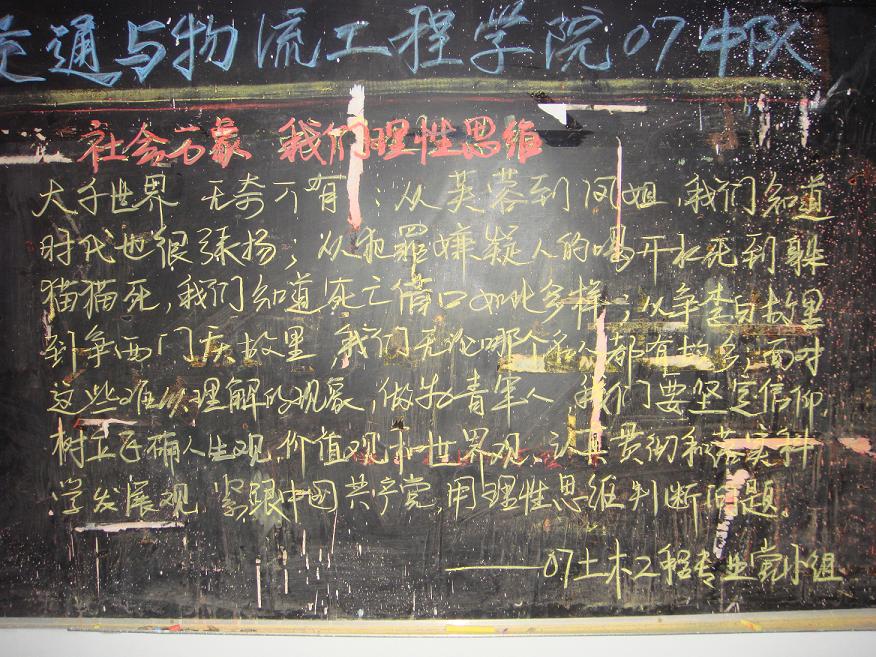 交通与物流工程学院07中队
社会万象 我们理性思维
大千世界 无奇不有：从芙蓉到凤姐，我们知道
时代也很张扬；从犯罪嫌疑人的喝开水死到躲
猫猫死，我们知道死亡借口如此多样；从争李白故里
到争西门庆故里，我们无论哪个名人都有故乡；面对
这些难以理解的现象，做为青军人，我们要坚定信仰，
树立正确人生观、价值观和世界观、认真贯彻和落实科
学发展观，紧跟中国共产党，用理性思维判断问题。
——07土木工程专业党小组